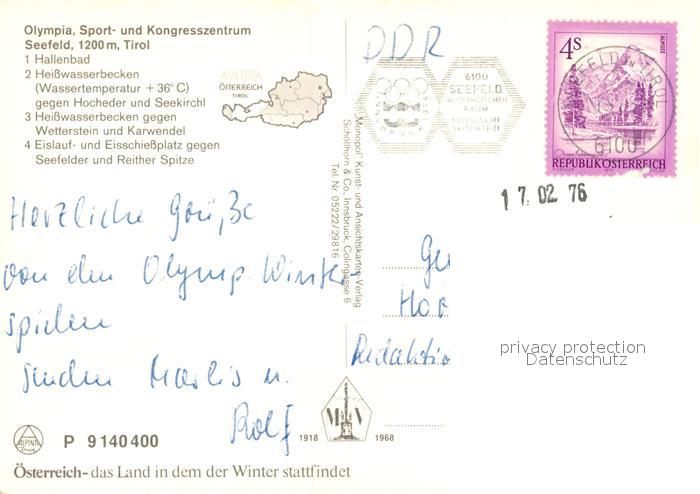 Olympia, Sport- und Kongresszentrum
Seefeld, 1200 m, Tirol
1 Hallenbad
2 Heißwasserbecken
(Wassertemperatur + 36° C)
gegen Hocheder und Seekirchl
3 Heißwasserbecken gegen
Wetterstein und Karwendel
4 Eislauf- und Eisschießplatz gegen
Seefelder und Reither Spitze
AUSTRIA
ÖSTERREICH
TIROL
DDR
6100
SEEFELD
IM OLYMPISCHEN
RAUM
4S
ALMSEE
REPUBLIK ÖSTERREICH
SEEFELD IN TIROL
6100
17.02.76
Herzliche Grüße
von den Olymp. Winter-
spielen
senden Marlis u.
Rolf
"Monopol" Kunst- und Ansichtskarten-Verlag
Schöllhorn & Co., Innsbruck, Colingasse 6
Tel. Nr. 05222/29816
Redaktio
privacy protection
Datenschutz
ALPINA
Druck
P 9140400
1918 MV 1968
Österreich - das Land in dem der Winter stattfindet